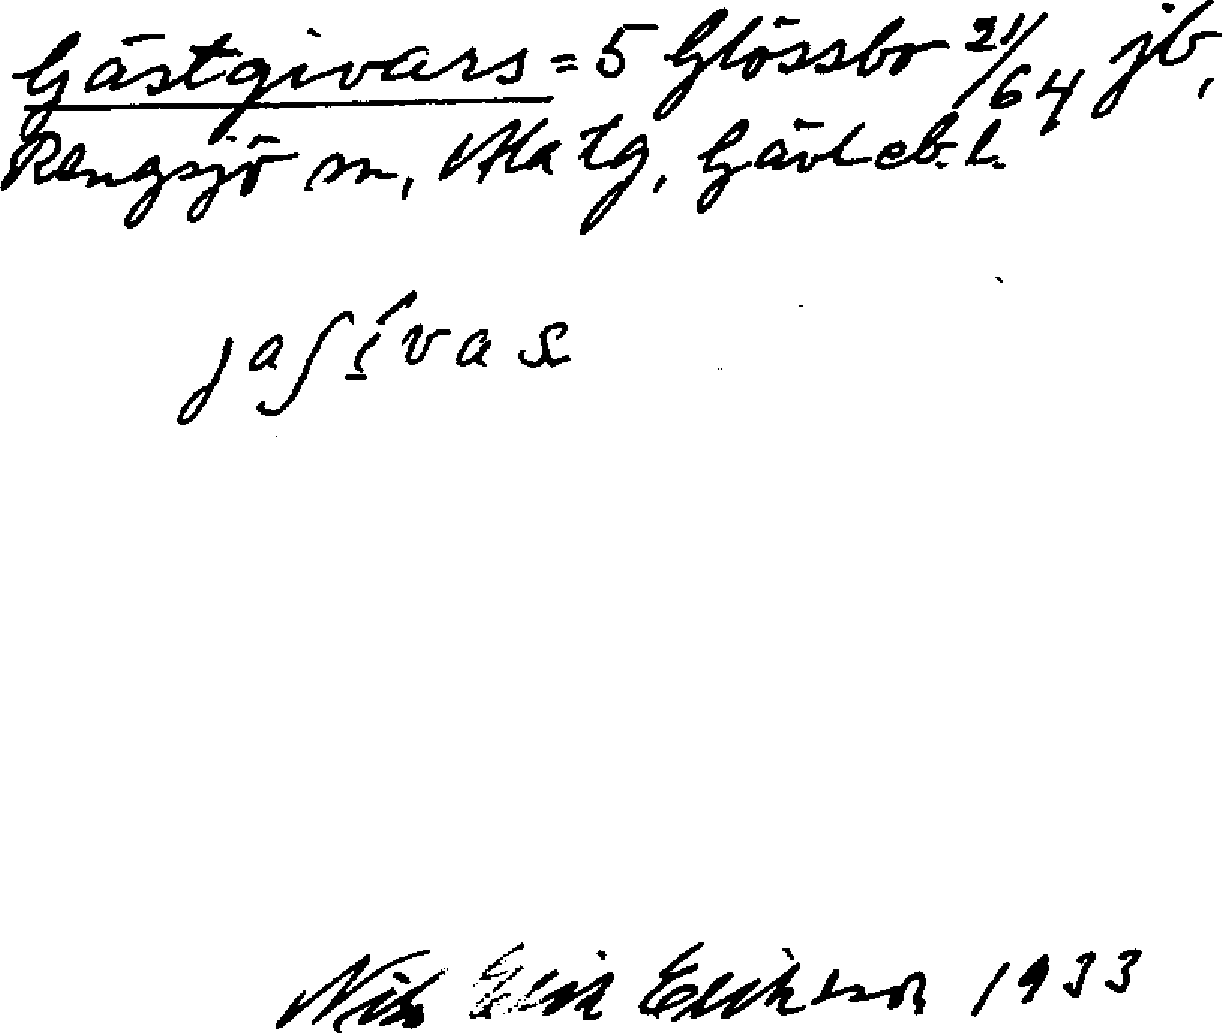 Gästgivars = 5 Glössbo 21/64 jb,
Rengsjö sn, Ala tg, Gävleb. l.
jaʃívas
Nils Erik Erikson 1933